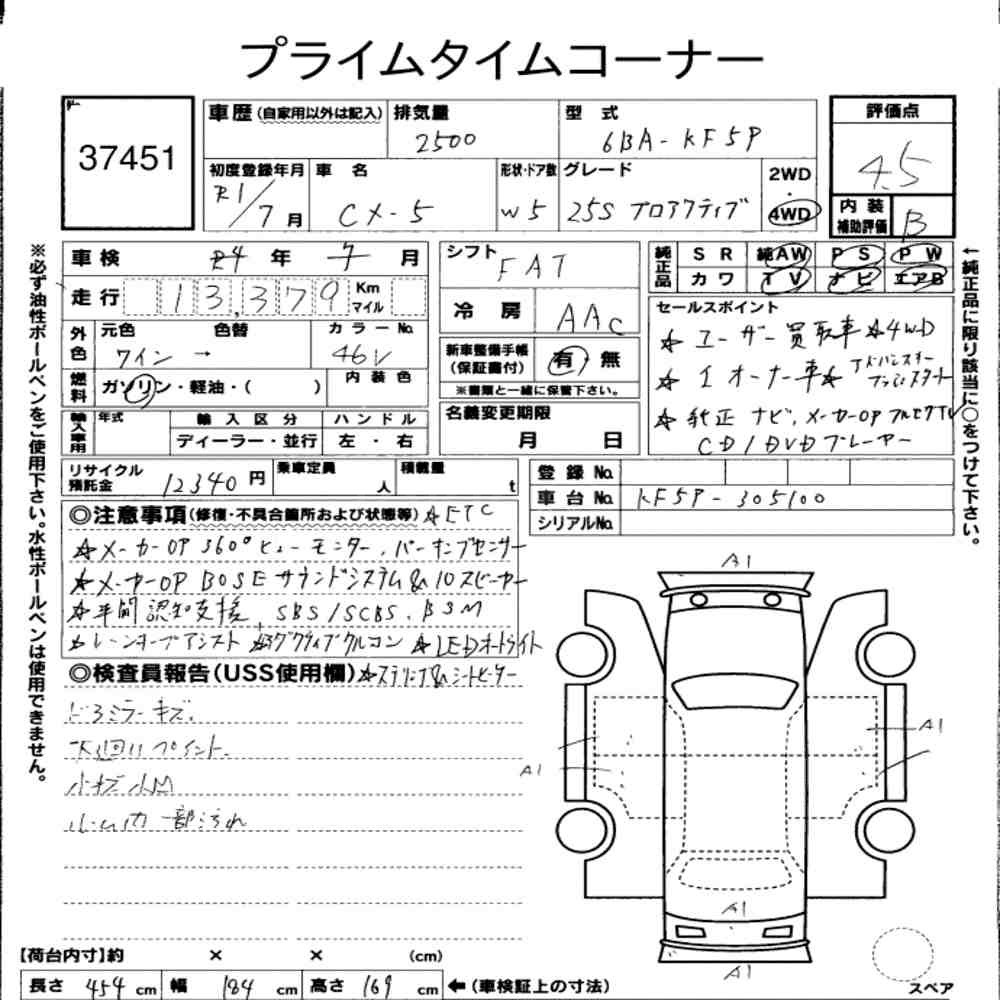 プライムタイムコーナー
37451
車歴 (自家用以外は記入) 排気量 2500
型式 6BA-KF5P
評価点 4.5
初度登録年月 R1/7月
車名 CX-5
形状・ドア数 W5
グレード 25S プロアクティブ
2WD・4WD
内装補助評価 B
車検 R4年 7月
シフト FAT
純正品 SR 純AW PS PW
カワ TV ナビ エアB
走行 13,379 Km マイル
冷房 AAC
セールスポイント
☆ユーザー買取車 ☆4WD
☆1オーナー車☆アドバンスキープッシュスタート
☆純正ナビ,メーカーOPフルセグTV
CD/DVDプレーヤー
外色 元色 ワイン → 色替
カラーNo. 46V
新車整備手帳(保証書付) 有 無
※書類と一緒に保管下さい。
燃料 ガソリン・軽油・( )
内装色
輸入車用 年式 輸入区分 ハンドル
ディーラー・並行 左・右
名義変更期限 月 日
リサイクル預託金 12340円
乗車定員 人
積載量 t
登録No.
車台No. KF5P-305100
シリアルNo.
◎注意事項(修復・不具合箇所および状態等) ☆ETC
☆メーカーOP 360°ビューモニター,パーキングセンサー
☆メーカーOP BOSEサウンドシステム&10スピーカー
☆車間認知支援,SBS/SCBS,BSM
☆レーンキープアシスト ☆アクティブクルコン ☆LEDオートライト
◎検査員報告(USS使用欄) ☆ステリング&シートヒーター
ドアミラーキズ,
下回りペイント
小キズ小凹
ルーム内一部汚れ
A1
A1
A1
A1
A1
A1
【荷台内寸】約 × × (cm)
長さ 454 cm 幅 184 cm 高さ 169 cm ←(車検証上の寸法)
スペア
※必ず油性ボールペンをご使用下さい。水性ボールペンは使用できません。
←純正品に限り該当に○をつけて下さい。